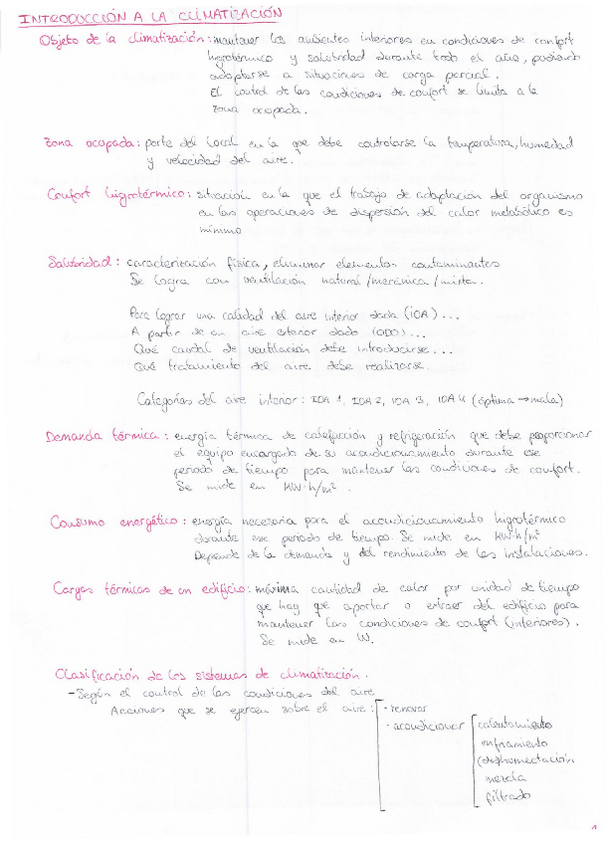 INTRODUCCIÓN A LA CLIMATIZACIÓN
Objeto de la climatización: mantener los ambientes interiores en condiciones de confort
higrotérmico y salubridad durante todo el año, pudiendo
adaptarse a situaciones de carga parcial.
El control de las condiciones de confort se limita a la
zona ocupada.
Zona ocupada: parte del local en la que debe controlarse la temperatura, humedad
y velocidad del aire.
Confort higrotérmico: situación en la que el trabajo de adaptación del organismo
en las operaciones de dispersión del calor metabólico es
mínimo
Salubridad: caracterización física, eliminar elementos contaminantes
Se logra con ventilación natural/mecánica/mixta.
Para lograr una calidad del aire interior dada (IDA)...
A partir de un aire exterior dado (ODA)...
Qué caudal de ventilación debe introducirse...
Qué tratamiento del aire debe realizarse.
Categorías del aire interior: IDA 1, IDA 2, IDA 3, IDA 4 (óptima → mala)
Demanda térmica: energía térmica de calefacción y refrigeración que debe proporcionar
el equipo encargado de su acondicionamiento durante ese
periodo de tiempo para mantener las condiciones de confort.
Se mide en kW·h/m².
Consumo energético: energía necesaria para el acondicionamiento higrotérmico
durante ese periodo de tiempo. Se mide en kW·h/m²
Depende de la demanda y del rendimiento de las instalaciones.
Cargas térmicas de un edificio: máxima cantidad de calor por unidad de tiempo
que hay que aportar o extraer del edificio para
mantener las condiciones de confort (interiores).
Se mide en W.
Clasificación de los sistemas de climatización.
- Según el control de las condiciones del aire
Acciones que se ejercen sobre el aire: - renovar
- acondicionar calentamiento
enfriamiento
(des)humectación
mezcla
filtrado
1